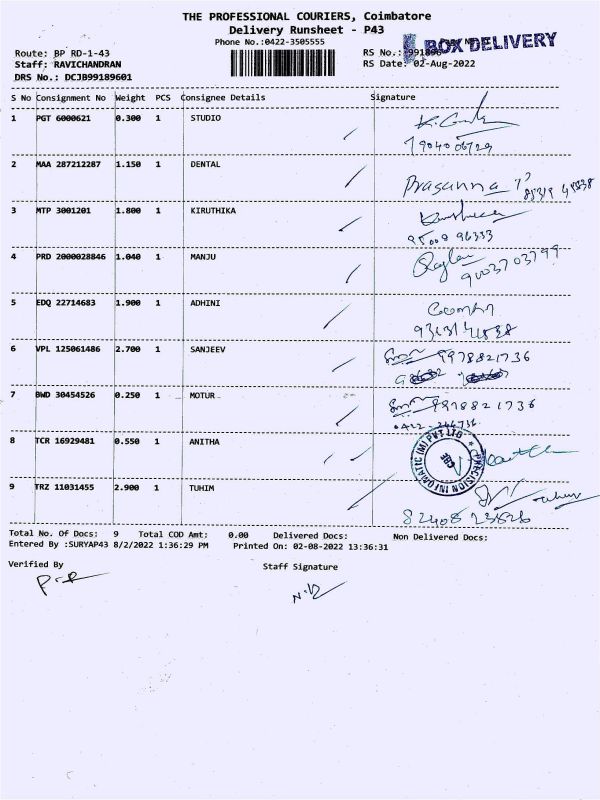 THE PROFESSIONAL COURIERS, Coimbatore
Delivery Runsheet - P43
Phone No.:0422-3505555
BOX DELIVERY
Route: BP RD-1-43
RS No.:
Staff: RAVICHANDRAN
RS Date: 02-Aug-2022
DRS No.: DCJB99189601
S No Consignment No Weight PCS Consignee Details Signature
1 PGT 6000621 0.300 1 STUDIO
7904006729
2 MAA 287212287 1.150 1 DENTAL
Prasanna
3 MTP 3001201 1.800 1 KIRUTHIKA
95008 96333
4 PRD 2000028846 1.040 1 MANJU
9003703799
5 EDQ 22714683 1.900 1 ADHINI
6 VPL 125061486 2.700 1 SANJEEV
9978821736
7 BWD 30454526 0.250 1 MOTUR
9978821736
8 TCR 16929481 0.550 1 ANITHA
PRECISION INFORMATIC (M) PVT LTD
CBE
9 TRZ 11031455 2.900 1 TUHIM
82408 23826
Total No. Of Docs: 9 Total COD Amt: 0.00 Delivered Docs: Non Delivered Docs:
Entered By :SURYAP43 8/2/2022 1:36:29 PM Printed On: 02-08-2022 13:36:31
Verified By
Staff Signature